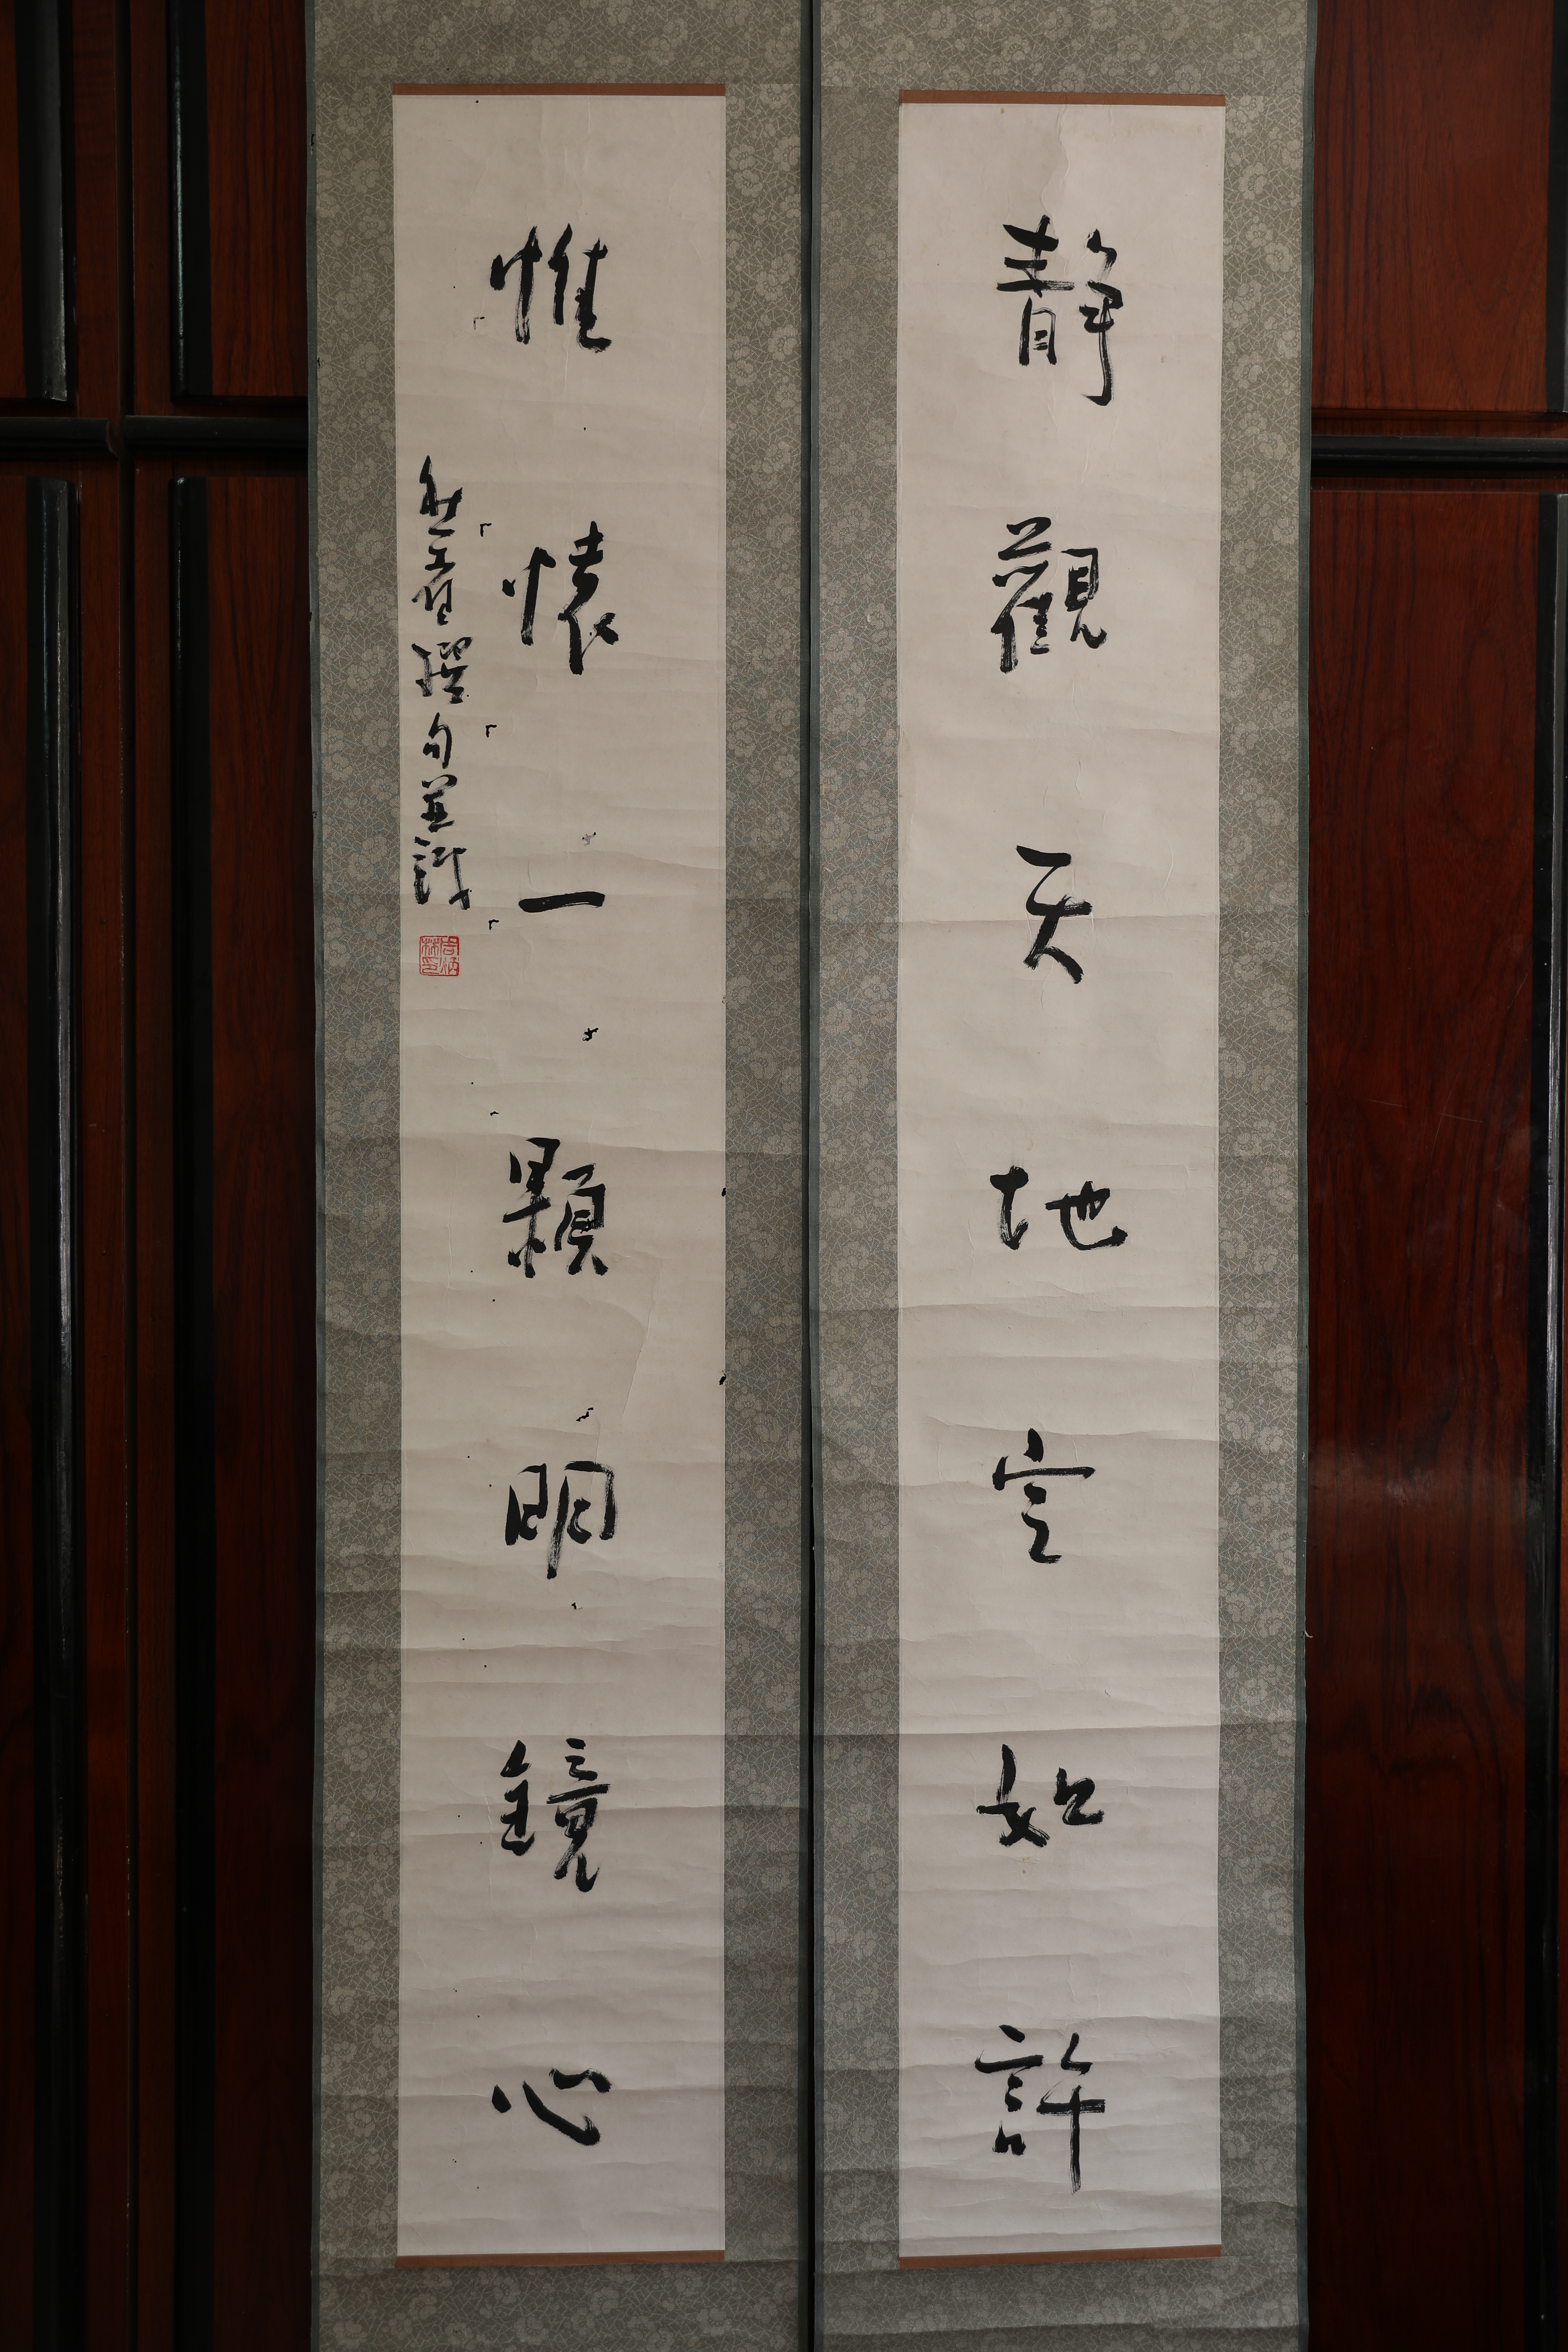 靜觀天地空如許
惟懷一顆明鏡心
撰句並識